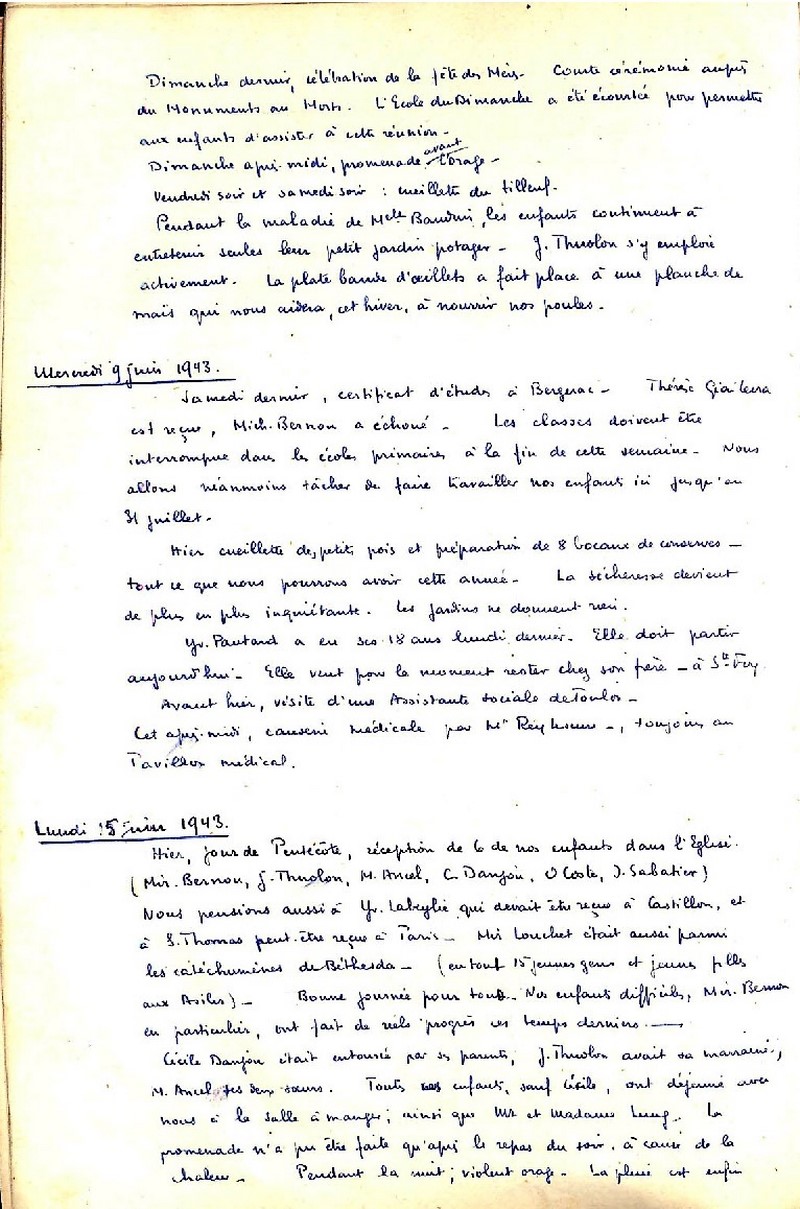 Dimanche dernier, célébration de la fête des Mères. Courte cérémonie auprès
du Monuments au Morts. L'Ecole du Dimanche a été écourtée pour permettre
aux enfants d'assister à cette réunion -
avant
Dimanche après-midi, promenade l'orage -
Vendredi soir et samedi soir : cueillette du tilleul.
Pendant la maladie de Melle Baudin, les enfants continuent à
entretenir seules leur petit jardin potager - J. Thuolon s'y emploie
activement. La plate bande d'œillets a fait place à une planche de
maïs qui nous aidera, cet hiver, à nourrir nos poules.
Mercredi 9 juin 1943.
Samedi dernier, certificat d'études à Bergerac - Thérèse
est reçue, Mich. Bernon a échoué - Les classes doivent être
interrompue dans les écoles primaires à la fin de cette semaine - Nous
allons néanmoins tâcher de faire travailler nos enfants ici jusqu'au
31 juillet -
Hier cueillette des petits pois et préparation de 8 bocaux de conserves -
tout ce que nous pourrons avoir cette année - La sécheresse devient
de plus en plus inquiétante. Les jardins ne donnent rien.
Yv. Pautard a eu ses 18 ans lundi dernier. Elle doit partir
aujourd'hui - Elle veut pour le moment rester chez son frère - à Ste Foy
Avant hier, visite d'une Assistante sociale de Toulon -
Cet après-midi, causerie médicale par -, toujours au
Pavillon médical.
Lundi 15 juin 1943.
Hier, jour de Pentecôte, réception de 6 de nos enfants dans l'Eglise.
(Mir. Bernon, J. Thuolon, M. Ancel, C. Danjou, O Coste, J. Sabatier)
Nous pensions aussi à Yv. Labeylie qui devait être reçue à Castillon, et
à S. Thomas peut-être reçue à Paris - Mir Louchet était aussi parmi
les catéchumènes de Béthesda - (en tout 15 jeunes gens et jeunes filles
aux Asiles) - Bonne journée pour tous - Nos enfants difficiles, Mir. Bernon
en particulier, ont fait de réels progrès ces temps derniers. -
Cécile Danjou était entourée par ses parents, J. Thuolon avait sa marraine,
M. Ancel ses deux sœurs. Toutes nos enfants, sauf Cécile, ont déjeuné avec
nous à la salle à manger ; ainsi que Mr et Madame Lung. La
promenade n'a pu être faite qu'après le repas du soir, à cause de la
chaleur - Pendant la nuit, violent orage - La pluie est enfin